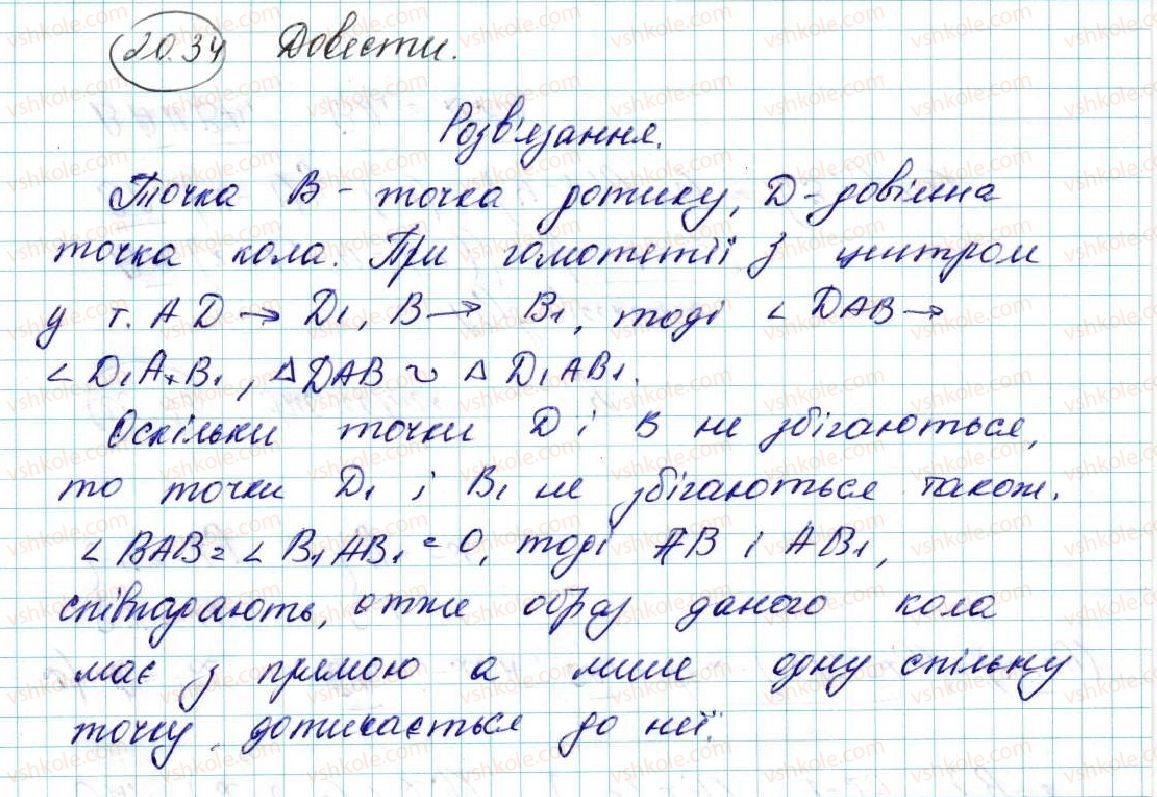 20.34 Довести.
Розв'язання.
Точка B - точка дотику, D - довільна
точка кола. При гомотетії з центром
у т. A D → D₁, B → B₁, тоді ∠ DAB →
∠ D₁A₁B₁, △ DAB ∾ △ D₁AB₁.
Оскільки точки D і B не збігаються,
то точки D₁ і B₁ не збігаються також.
∠ BAB = ∠ B₁AB₁ = 0, тоді AB і AB₁,
співпадають, отже образ даного кола
має з прямою a лише одну спільну
точку, дотикається до неї.